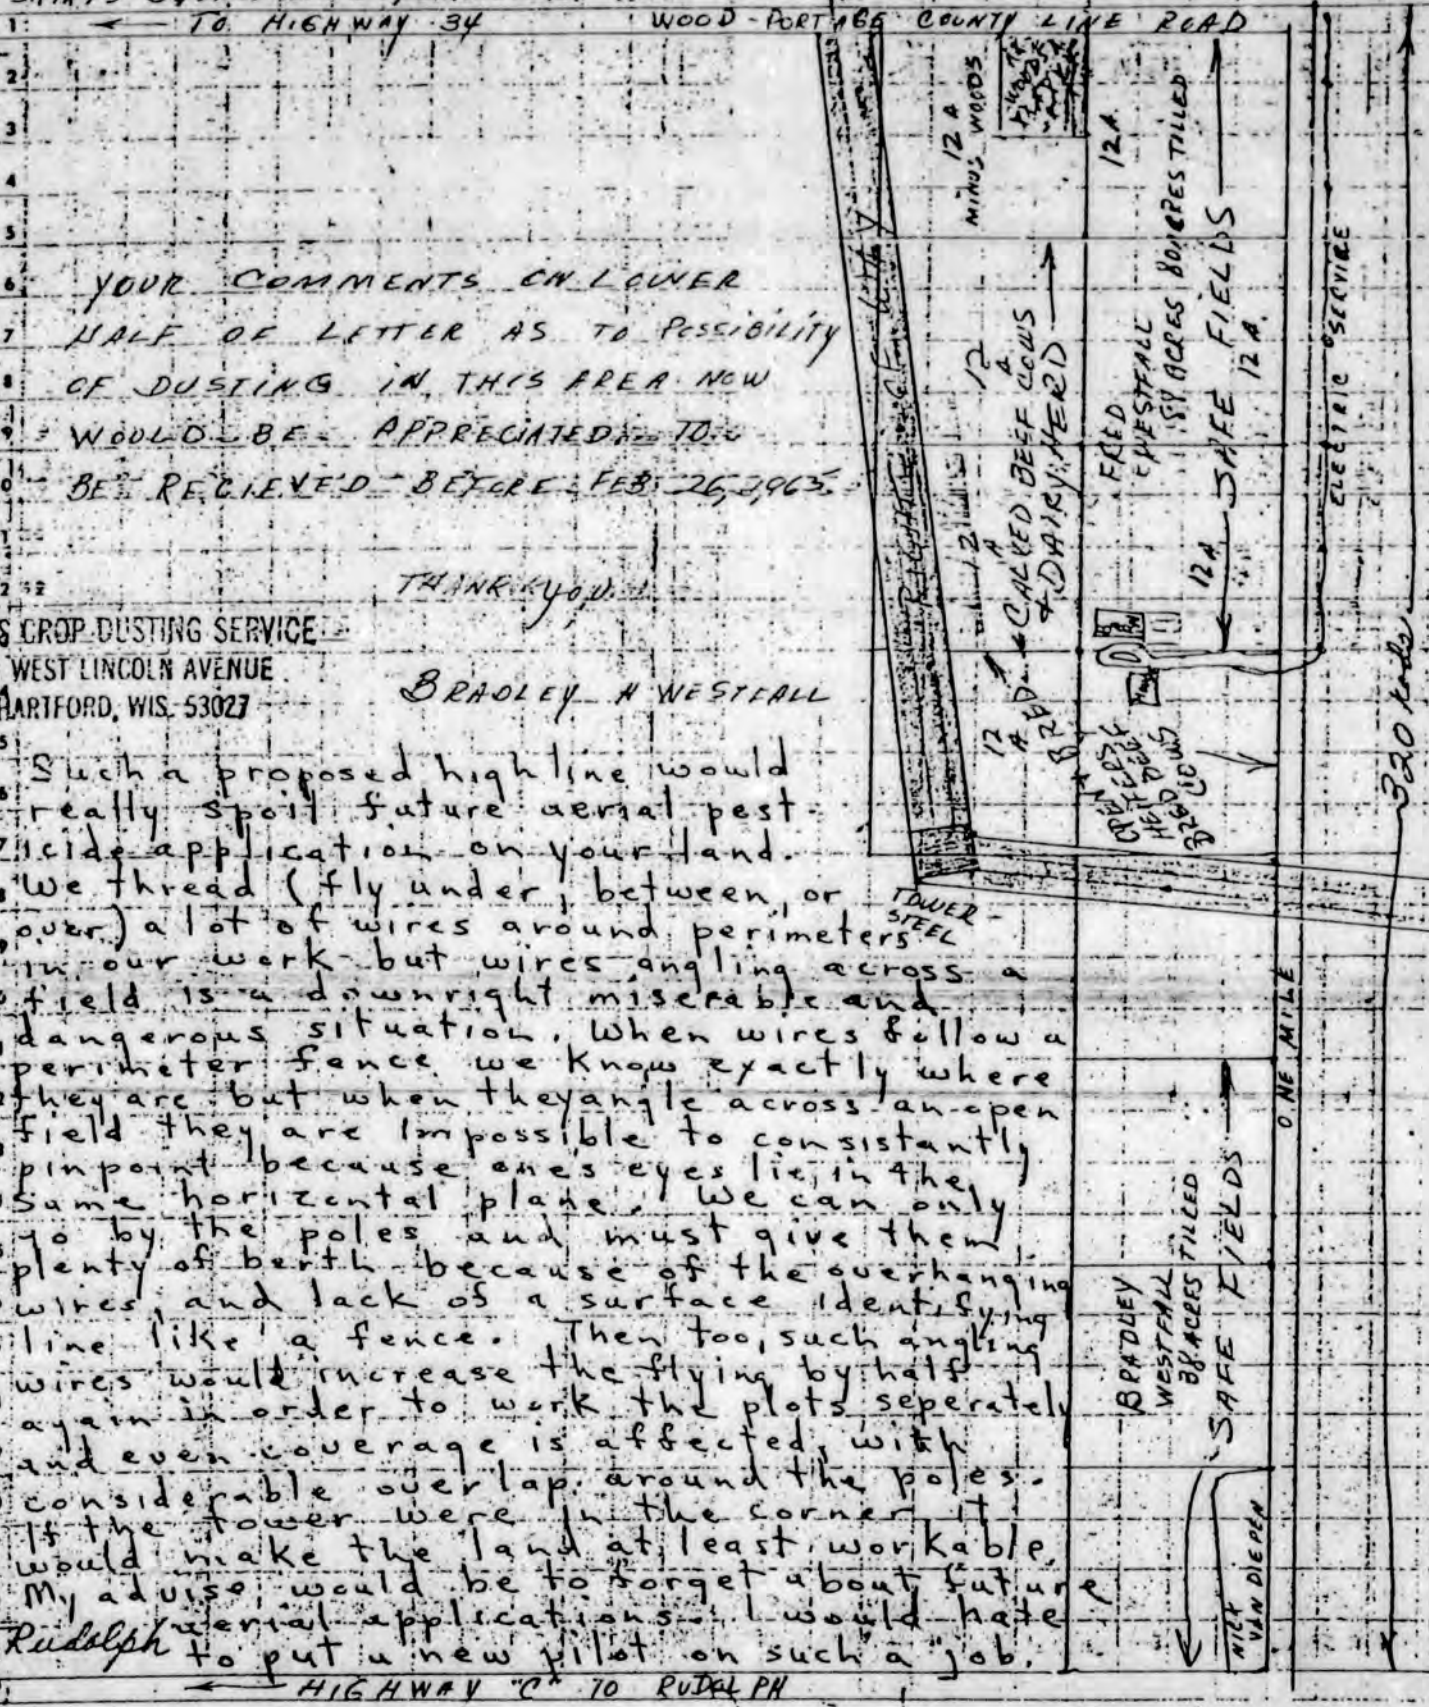 ← TO HIGHWAY 34 WOOD-PORTAGE COUNTY LINE ROAD
YOUR COMMENTS ON LOWER
HALF OF LETTER AS TO POSSIBILITY
OF DUSTING IN THIS AREA NOW
WOULD BE APPRECIATED TO
BE RECIEVED BEFORE FEB 26, 1965
THANK YOU
S CROP DUSTING SERVICE
WEST LINCOLN AVENUE
HARTFORD, WIS. 53027
BRADLEY H WESTFALL
Such a proposed highline would
really spoil future aerial pest-
icide application on your land.
We thread (fly under, between, or
over) a lot of wires around perimeters
in our work but wires angling across a
field is a downright miserable and
dangerous situation. When wires follow a
perimeter fence we know exactly where
they are but when they angle across an open
field they are impossible to consistantly
pinpoint because ones eyes lie in the
same horizontal plane. We can only
go by the poles and must give them
plenty of berth because of the overhanging
wires, and lack of a surface identifying
line like a fence. Then too, such angling
wires would increase the flying by half
again in order to work the plots seperately
and even coverage is affected, with
considerable overlap around the poles.
If the tower were in the corner it
would make the land at least workable.
My advise would be to forget about future
aerial applications. I would hate
to put a new pilot on such a job.
Rudolph
← HIGHWAY "C" TO RUDOLPH
RIGHT OF WAY
12 A
MINUS WOODS
12 A
12 A
12 A
CALVED BEEF COWS
& DAIRY HERD
BRED
12 A
FRED
WESTFALL
80 ACRES TILLED
SAFE FIELDS
12 A
12 A
HEIFERS
BRED COWS
TOWER
STEEL
ELECTRIC SERVICE
320 Rods
ONE MILE
BRADLEY
WESTFALL
38 ACRES TILLED
SAFE FIELDS
NICK
VAN DIEPEN